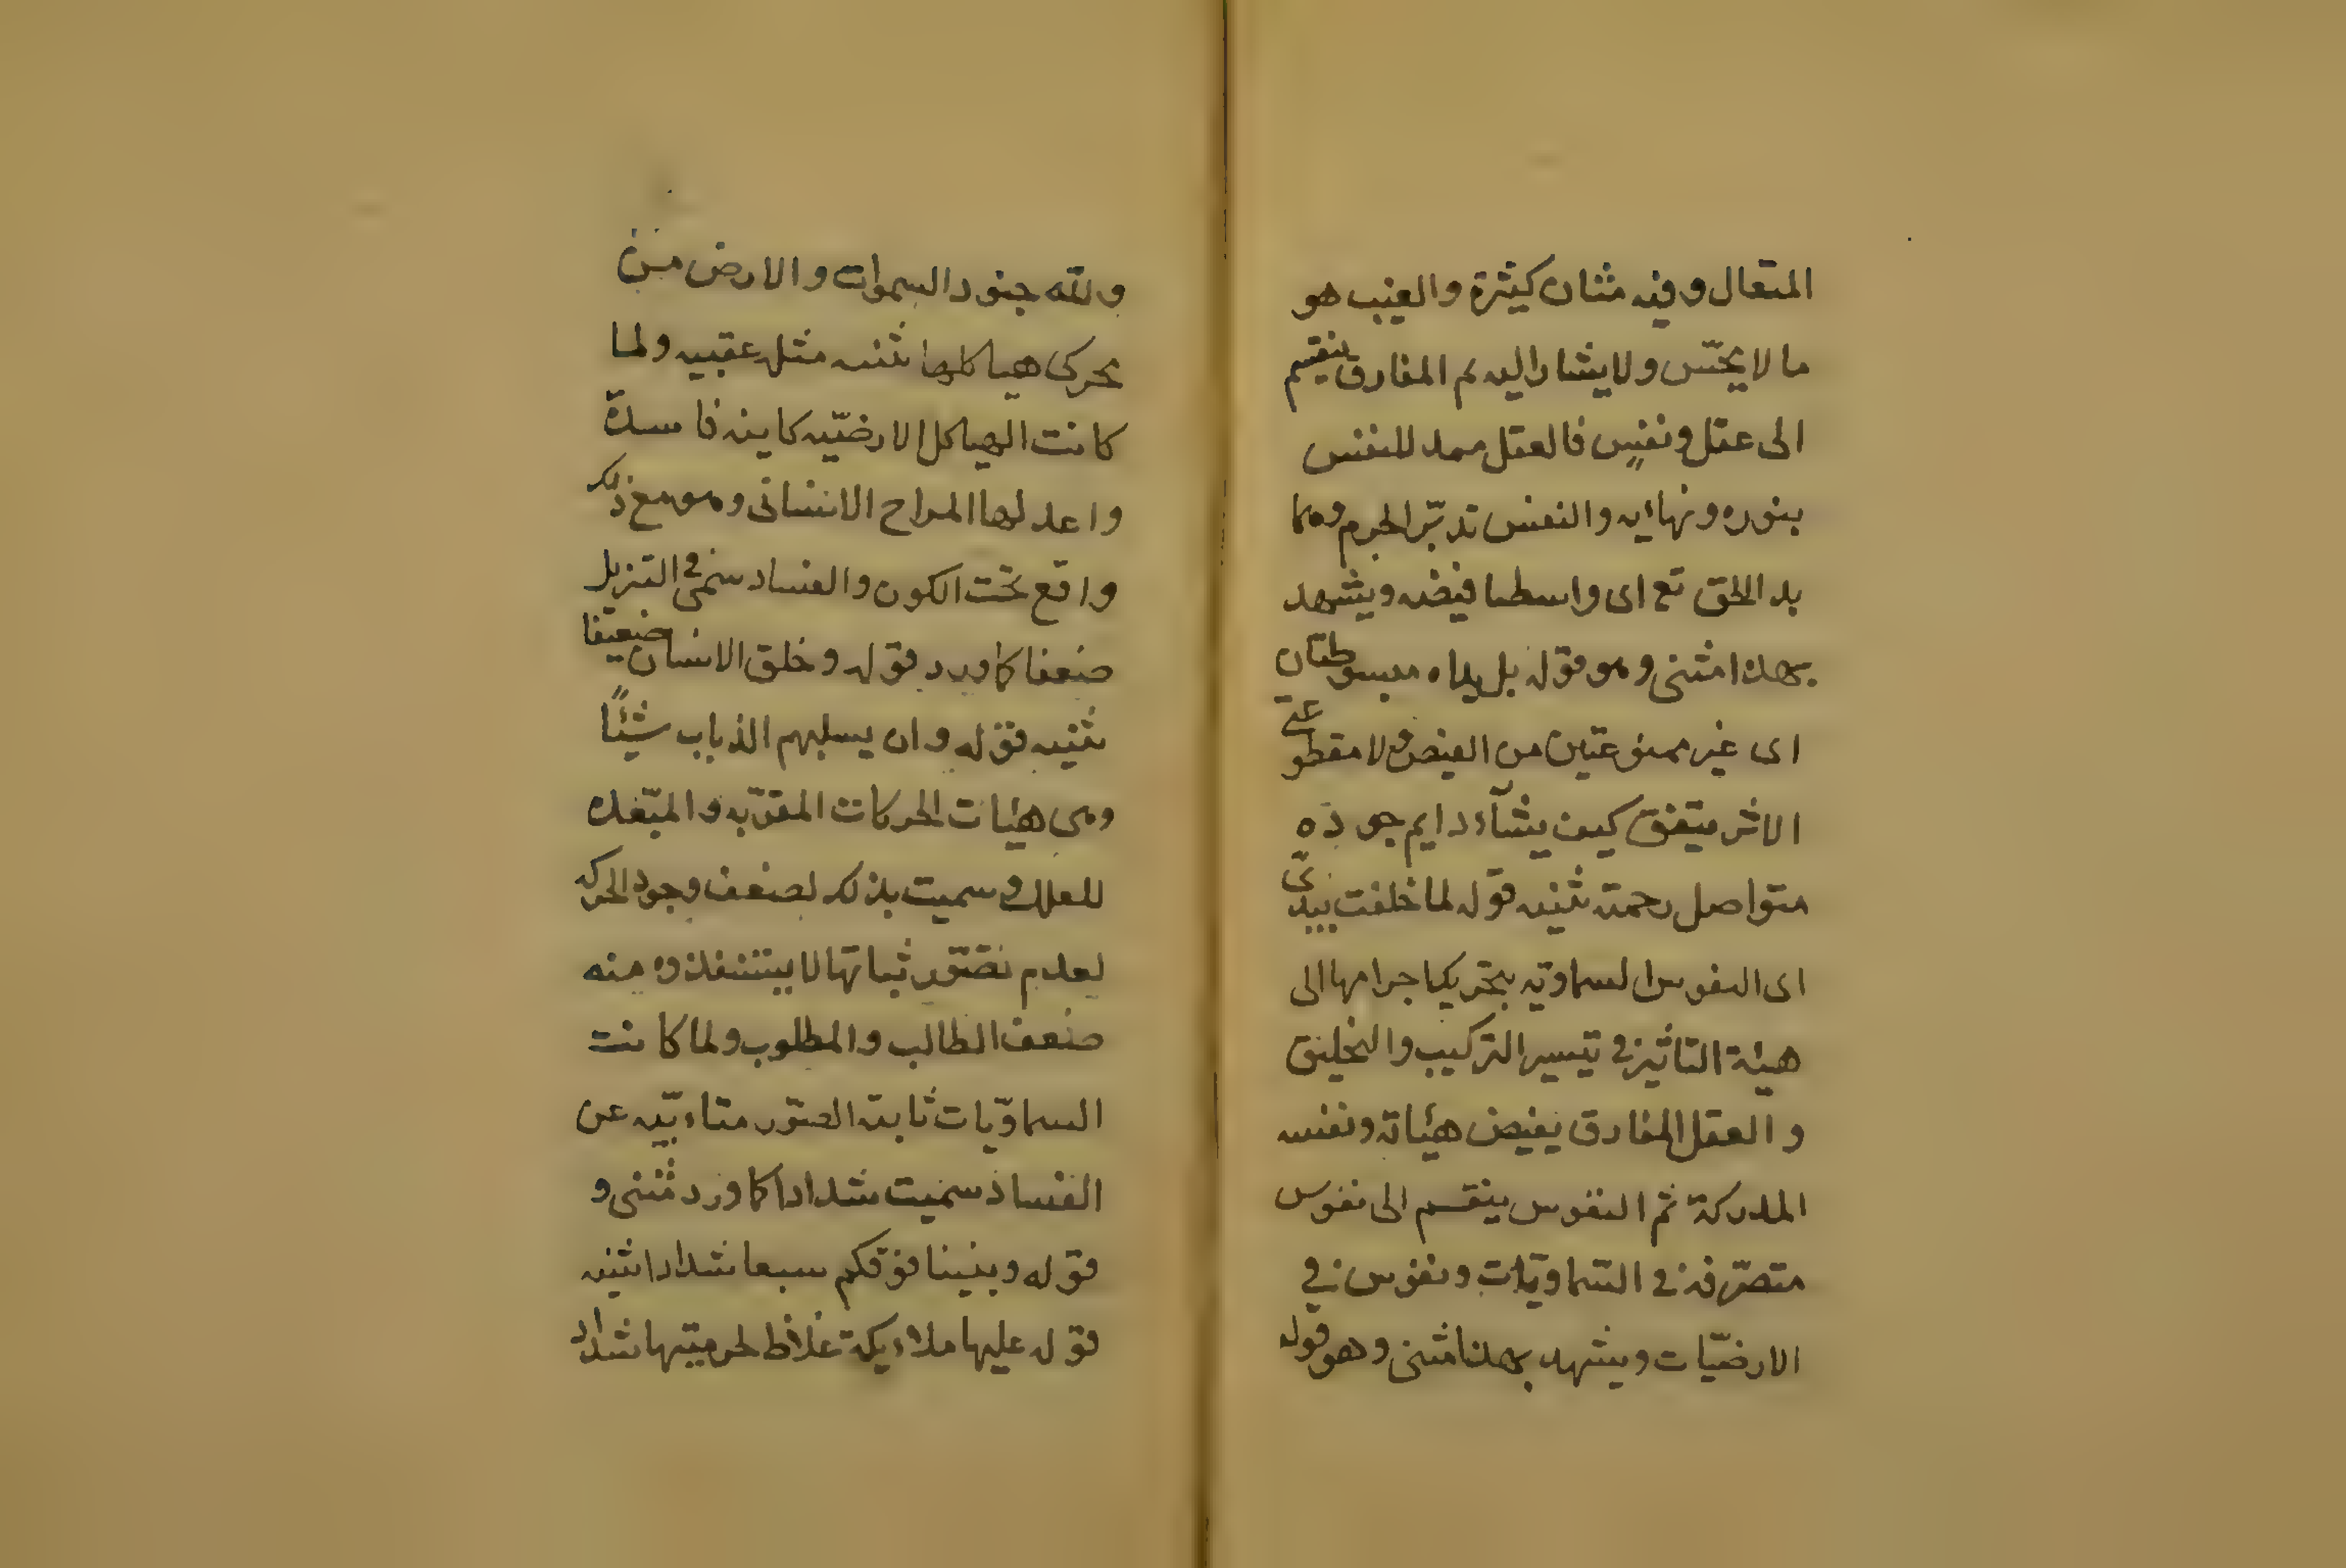 المتعال وفيه مثان كثيرة والغيب هو
ما لا يحسّ ولا يشار اليه ثم المفارق ينقسم
الى عقل ونفس فالعقل ممد للنفس
بنوره ونهاايه والنفس تدبّر الجرم وهما
يد الحق تع اى واسطا فيضه ويشهد
بهذا مثنى وهو قوله بل يداه مبسوطتان
اى غير ممنوعتين من الفيض ولا مقطوعتى
الاثر ينفق كيف يشآء دايم جوده
متواصل رحمته تثنيه قوله لما خلقت بيدىّ
اى النفوس السماويّه بتحريكها جرامها الى
هيئة التاثير فى تيسير التركيب والتخليق
والعقل المفارق يفيض هيئاته ونفسه
المدركة ثم النفوس ينقسم الى نفوس
متصرّفه فى السّماويّات ونفوس فى
الارضيّات ويشهد بهذا مثنى وهو قوله
ولله جنود السموات والارض من
يحركى هياكلها تثنيه مثله عقبيه ولما
كانت الهياكل الارضيّه كاينه فاسدة
واعدلها المزاح الانسانى وهو مع ذلك
واقع تحت الكون والفساد سمى فى التنزيل
ضعفا كا ورد قوله وخلق الانسان ضعيفا
تثنيه قوله وان يسلبهم الذباب شيئًا
وهى هيئات الحركات المقرّبه والمبّعده
للعلل وسميت بذلك لضعف وجود الحركه
لعدم تصّور ثباتها لا يستنقذوه منه
ضعف الطالب والمطلوب ولما كانت
السماويّات ثابته الصّور متاءبّيه عن
الفساد سميت شدادا كا ورد مثنى و
قوله وبنينا فوقكم سبعا شدادا تثنيه
قوله عليها ملاءيكة غلاظ لحرميتها شداد